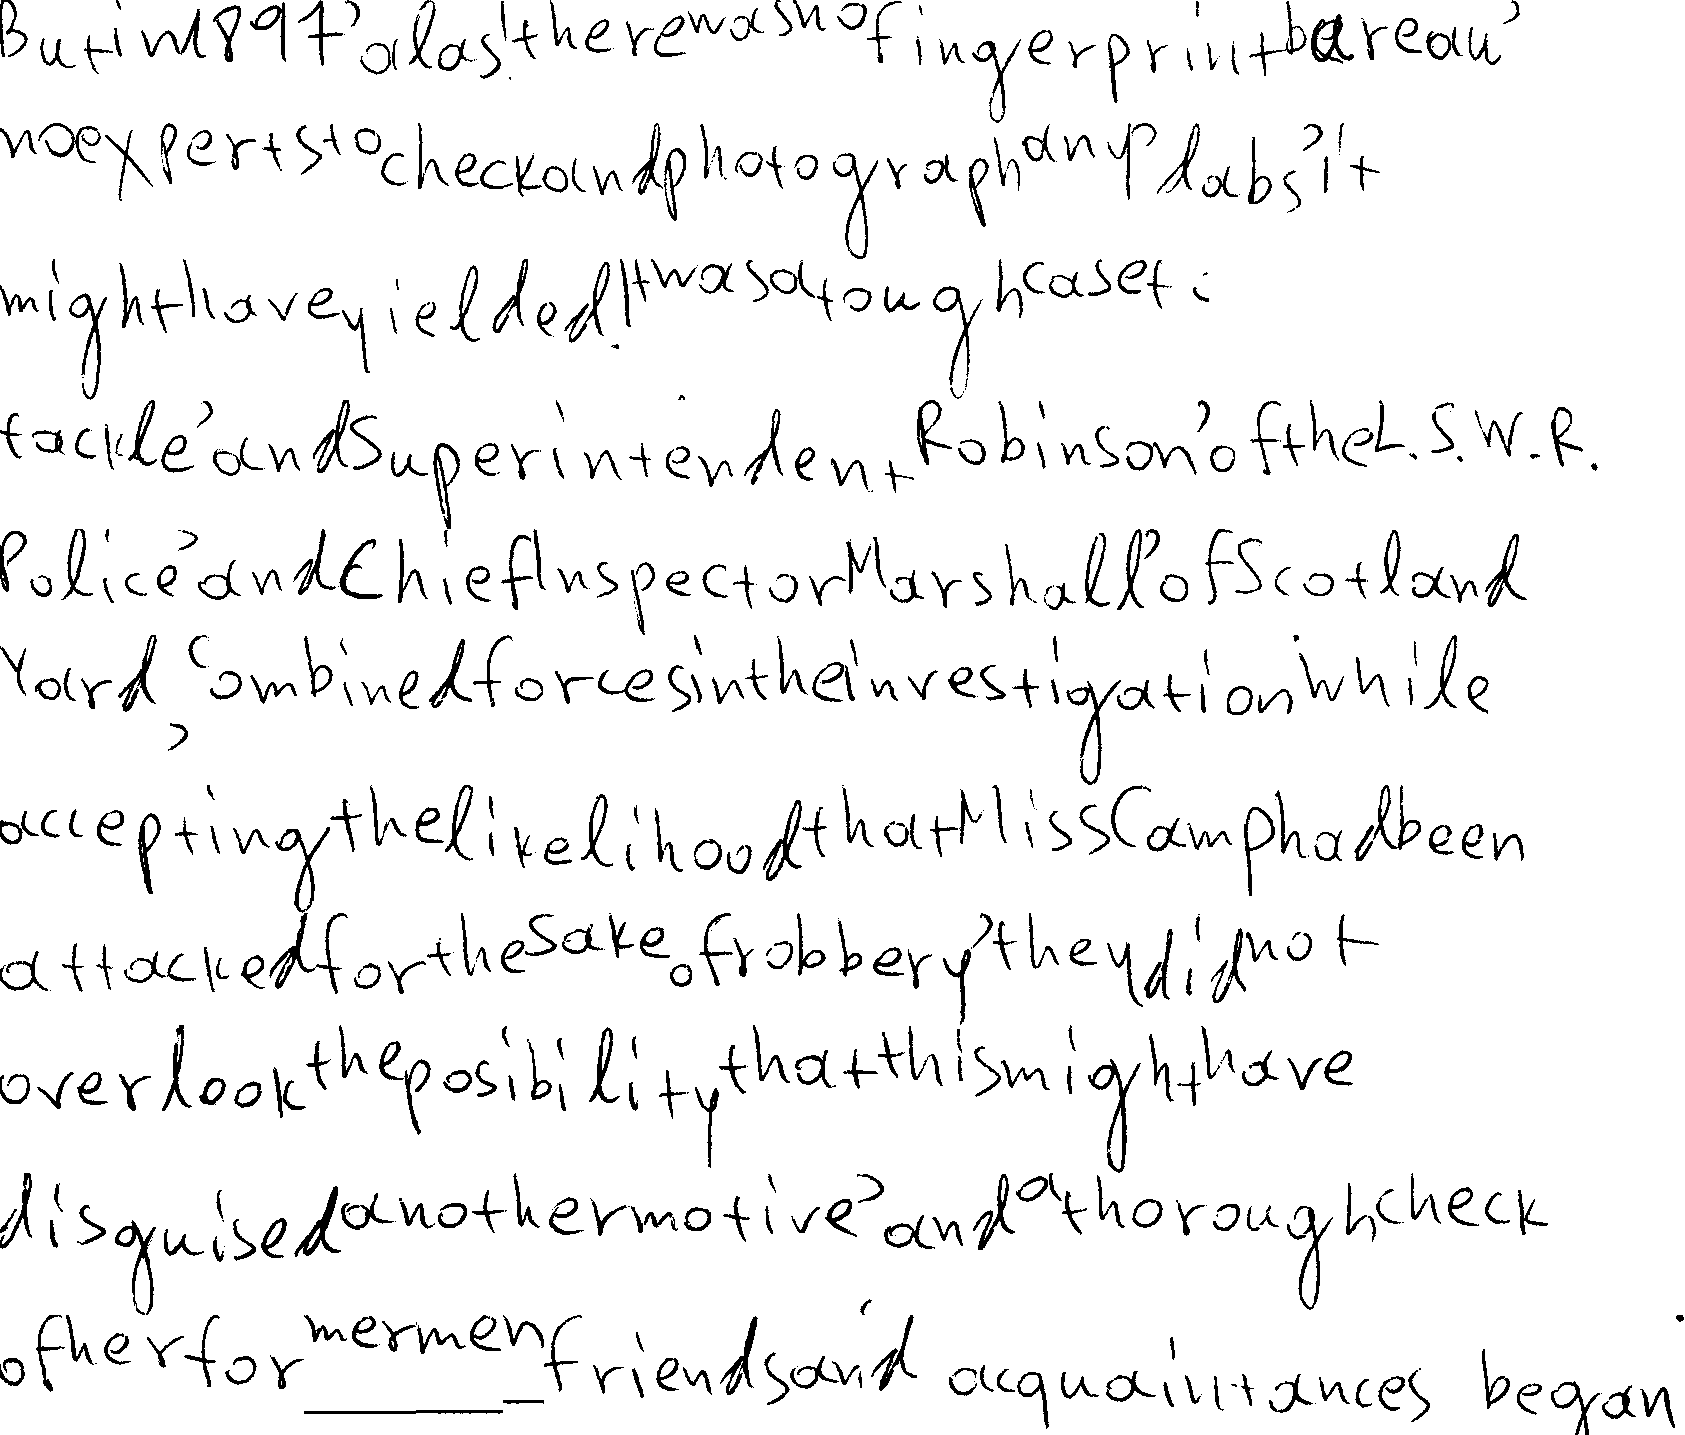 But in 1897, alas! there was no fingerprint bureau,
no experts to check and photograph any dabs it
might have yielded. It was a tough case t:
tackle, and Superintendent Robinson, of the L.S.W.R.
Police, and Chief Inspector Marshall, of Scotland
Yard, combined forces in the investigation. While
accepting the likelihood that Miss Camp had been
attacked for the sake of robbery, they did not
overlook the posibility that this might have
disguised another motive, and a thorough check
of her for mer men friends and acquaintances began.